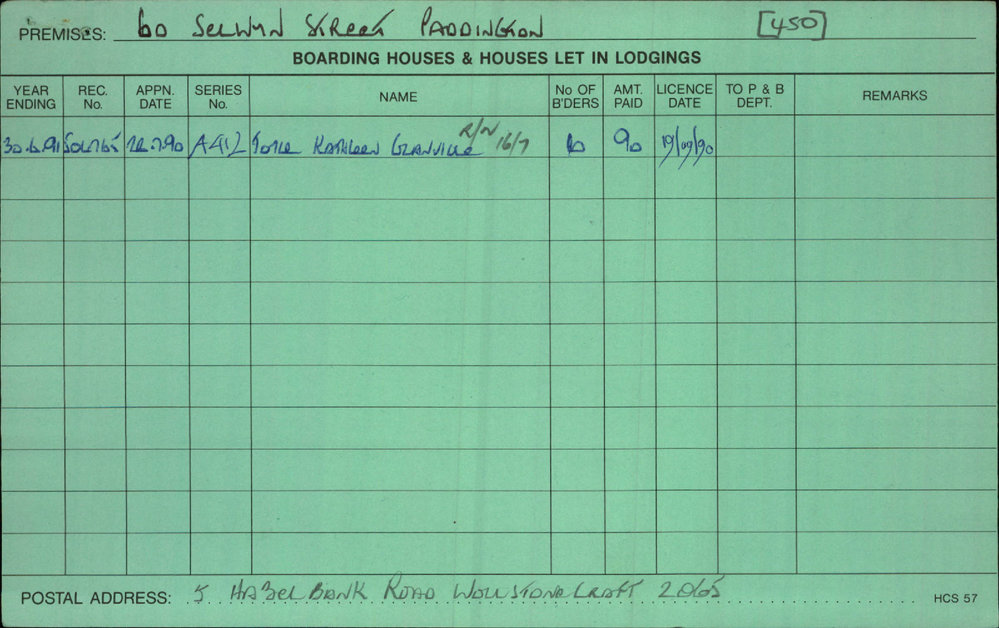 PREMISES: 60 Selwyn Street Paddington [450]
BOARDING HOUSES & HOUSES LET IN LODGINGS
YEAR ENDING REC. No. APPN. DATE SERIES No. NAME No OF B'DERS AMT. PAID LICENCE DATE TO P & B DEPT. REMARKS
30.6.91 A412 Kathleen Granville R/N 16/7 90 19/09/90
POSTAL ADDRESS: 5 Hazel Bank Road Wollstonecraft 2065
HCS 57